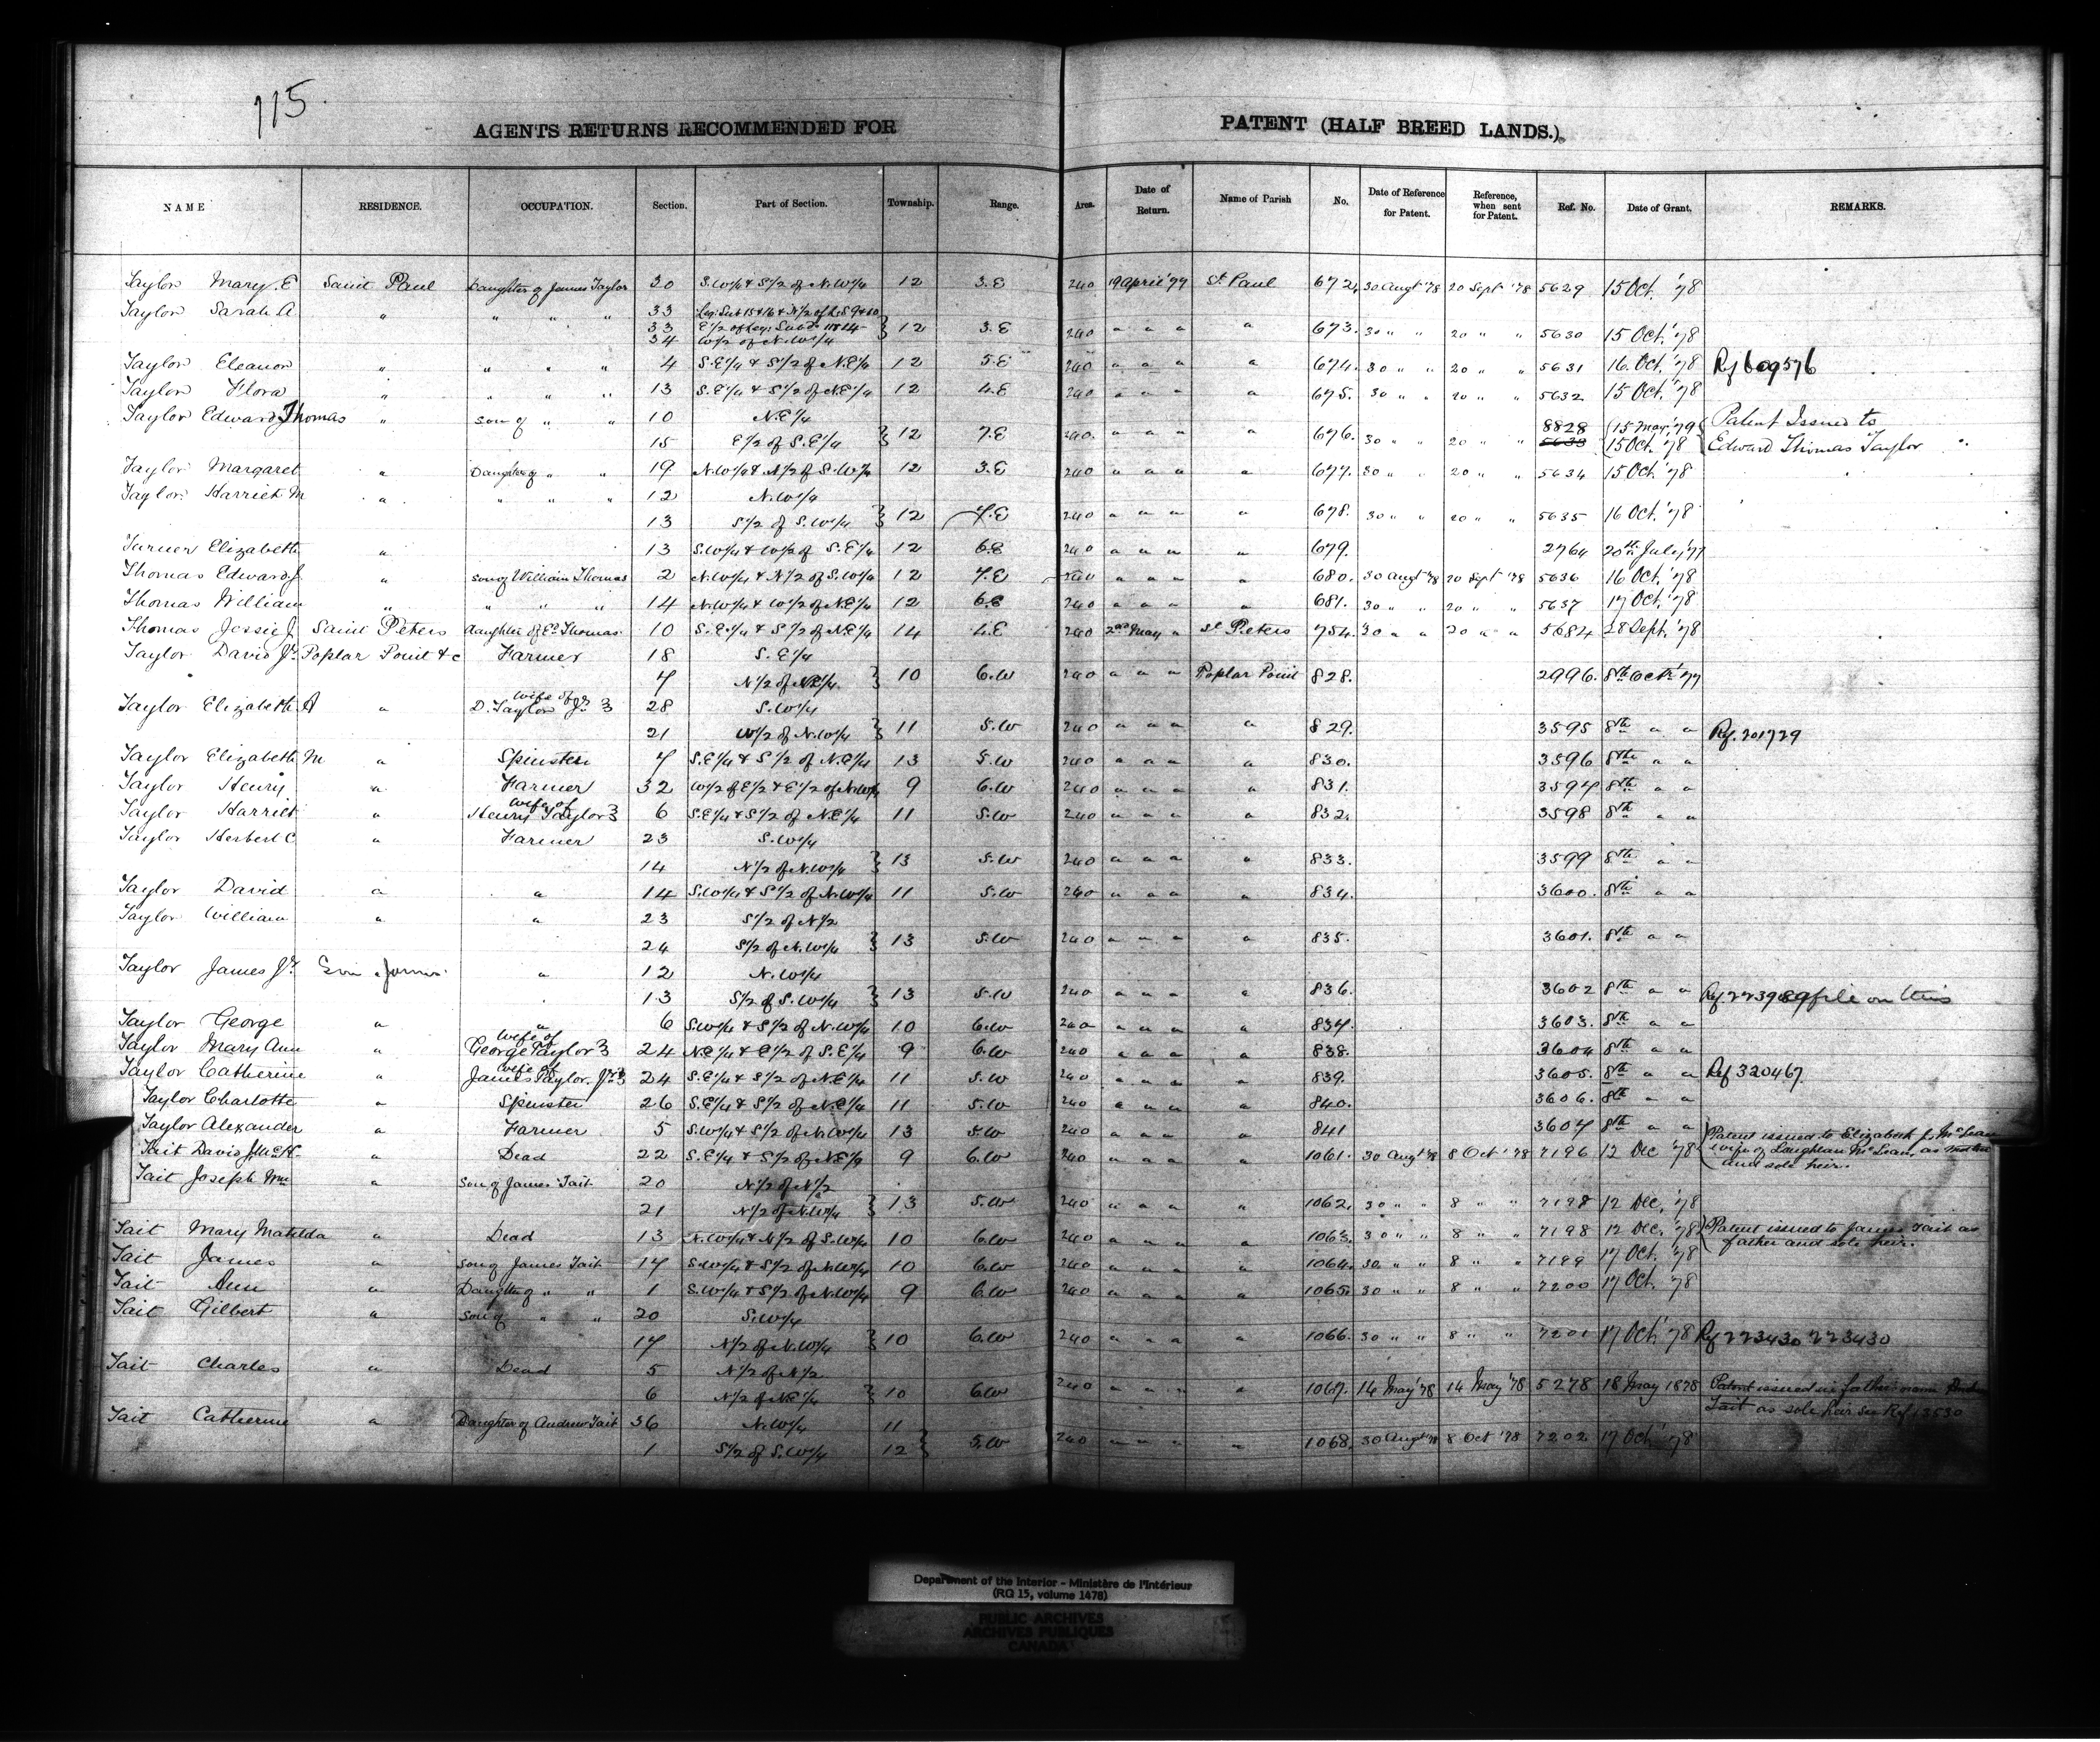 115
AGENTS RETURNS RECOMMENDED FOR PATENT (HALF BREED LANDS.)
NAME RESIDENCE. OCCUPATION. Section. Part of Section. Township. Range. Area. Date of Return. Name of Parish No. Date of Reference for Patent. Reference, when sent for Patent. Ref. No. Date of Grant. REMARKS.
Taylor Mary. E Saint Paul Daughter of James Taylor 30 S.W1/4 & S1/2 of N.W1/4 12 3.E 240 19 April '77 St. Paul 672. 30 Augt '78 20 Sept '78 5629 15 Oct. '78
Taylor Sarah A. " " " " 33 Leg: Sub 15 & 16 & N1/2 of L.S 9 & 10
33 E1/2 of Leg: Sub 11 & 14 } 12 3.E 240 " " " " 673. 30 " " 20 " " 5630 15 Oct. '78
34 W1/2 of N.W1/4
Taylor Eleanor " " " " 4 S.E1/4 & S1/2 of N.E1/4 12 5.E 240 " " " " 674. 30 " " 20 " " 5631 16. Oct. '78 Rf 609576
Taylor Flora " " " " 13 S.E1/4 & S1/2 of N.E1/4 12 4.E 240 " " " " 675. 30 " " 20 " " 5632 15 Oct. '78
Taylor Edward Thomas " son of " " 10 N.E1/4 8828 (15 May. '79 { Patent Issued to
15 E1/2 of S.E1/4 } 12 7.E 240. " " " " 676. 30 " " 20 " " 5633 (15 Oct. '78 Edward Thomas Taylor
Taylor Margaret " Daughter of " " 19 N.W1/4 & N1/2 of S.W1/4 12 3.E 240 " " " " 677. 30 " " 20 " " 5634 15 Oct. '78
Taylor. Harriet M " " " " 12 N.W1/4
13 S1/2 of S.W1/4 } 12 7.E 240 " " " " 678. 30 " " 20 " " 5635 16 Oct. '78
Turner Elizabeth " 13 S.W1/4 & W1/2 of S.E1/4 12 6.E 240 " " " " 679. 2764 20th July '77
Thomas Edward J. " son of William Thomas 2 N.W1/4 & N1/2 of S.W1/4 12 7.E 240 " " " " 680. 30 Augt '78 20 Sept '78 5636 16 Oct. '78
Thomas William " " " " 14 N.W1/4 & W1/2 of N.E1/4 12 6.E 240 " " " " 681. 30 " " 20 " " 5637 17 Oct. '78
Thomas Jessie J. Saint Peters daughter of Ed. Thomas 10 S.E1/4 & S1/2 of N.E1/4 14 4.E 240 2nd May " St Peters 754. 30 " " 20 " " 5684 28 Sept. '78
Taylor David Jr. Poplar Point &c Farmer 18 S.E1/4
7 N1/2 of N.E1/4. } 10 6.W 240 " " " Poplar Point 828. 2996. 8th Oct '77
Taylor Elizabeth A " wife of D. Taylor Jr } 28 S.W1/4
21 W1/2 of N.W1/4 } 11 5.W 240 " " " " 829. 3595 8th " " Rf. 201729
Taylor Elizabeth M " Spinster 7 S.E1/4 & S1/2 of N.E1/4 13 5.W 240 " " " " 830. 3596 8th " "
Taylor Henry " Farmer 32 W1/2 of E1/2 & E1/2 of N.W1/4 9 6.W 240 " " " " 831. 3597 8th " "
Taylor Harriet " wife of Henry Taylor } 6 S.E1/4 & S1/2 of N.E1/4 11 5.W 240 " " " " 832. 3598 8th " "
Taylor Herbert C " Farmer 23 S.W1/4
14 N1/2 of N.W1/4 } 13 5.W 240 " " " " 833. 3599 8th " "
Taylor David " " 14 S.W1/4 & S1/2 of N.W1/4 11 5.W 240 " " " " 834. 3600. 8th " "
Taylor William " " 23 S1/2 of N1/2
24 S1/2 of N.W1/4 } 13 5.W 240 " " " " 835. 3601. 8th " "
Taylor James Jr. " 12 N.W1/4
13 S1/2 of S.W1/4 } 13 5.W 240 " " " " 836. 3602 8th " " file on this
Taylor George " " 6 S.W1/4 & S1/2 of N.W1/4 10 6.W 240 " " " " 837. 3603. 8th " "
Taylor Mary Ann " wife of George Taylor } 24 N.E1/4 & E1/2 of S.E1/4 9 6.W 240 " " " " 838. 3604 8th " "
Taylor Catherine " wife of James Taylor. Jr } 24 S.E1/4 & S1/2 of N.E1/4 11 5.W 240 " " " " 839. 3605. 8th " " Rf 320467.
Taylor Charlotte " Spinster 26 S.E1/4 & S1/2 of N.E1/4 11 5.W 240 " " " " 840. 3606. 8th " "
Taylor Alexander " Farmer 5 S.W1/4 & S1/2 of N.W1/4 13 5.W 240 " " " " 841 3607 8th " "
Tait David J. McK " Dead 22 S.E1/4 & S1/2 of N.E1/4 9 6.W 240 " " " " 1061. 30 Augt '78 8 Oct '78 7196 12 Dec '78 { Patent issued to Elizabeth J. McLean wife of Laughlan McLean, as mother and sole heir.
Tait Joseph Wm " son of James Tait 20 N1/2 of N1/2
21 N1/2 of N.W1/4 } 13 5.W 240 " " " " 1062. 30 " " 8 " " 7198 12 Dec. '78
Tait Mary Matilda " Dead 13 N.W1/4 & N1/2 of S.W1/4 10 6.W 240 " " " " 1063. 30 " " 8 " " 7198 12 Dec. '78 { Patent issued to James Tait as father and sole heir.
Tait James " son of James Tait 17 S.W1/4 & S1/2 of N.W1/4 10 6.W 240 " " " " 1064. 30. " " 8 " " 7199 17 Oct. '78
Tait Ann " Daughter of " " 1 S.W1/4 & S1/2 of N.W1/4 9 6.W 240 " " " " 1065. 30 " " 8 " " 7200 17 Oct. '78
Tait Gilbert " son of " " 20 S.W1/4
17 N1/2 of N.W1/4 } 10 6.W 240 " " " " 1066. 30 " " 8 " " 7201 17 Oct '78 Rf 223430 223430
Tait Charles " Dead 5 N1/2 of N1/2
6 N1/2 of N.E1/4 } 10 6.W 240 " " " " 1067. 14 May '78 14 May '78 5278 18 May 1878 Patent issued in father name
Tait as sole heir see Ref 13530
Tait Catherine " Daughter of Andrew Tait 36 N.W1/4 11
1 S1/2 of S.W1/4 12 } 5.W 240 " " " " 1068. 30 Augt '78 8 Oct '78 7202 17 Oct '78
Department of the Interior - Ministère de l'Intérieur
(RG 15, volume 1478)
PUBLIC ARCHIVES
ARCHIVES PUBLIQUES
CANADA